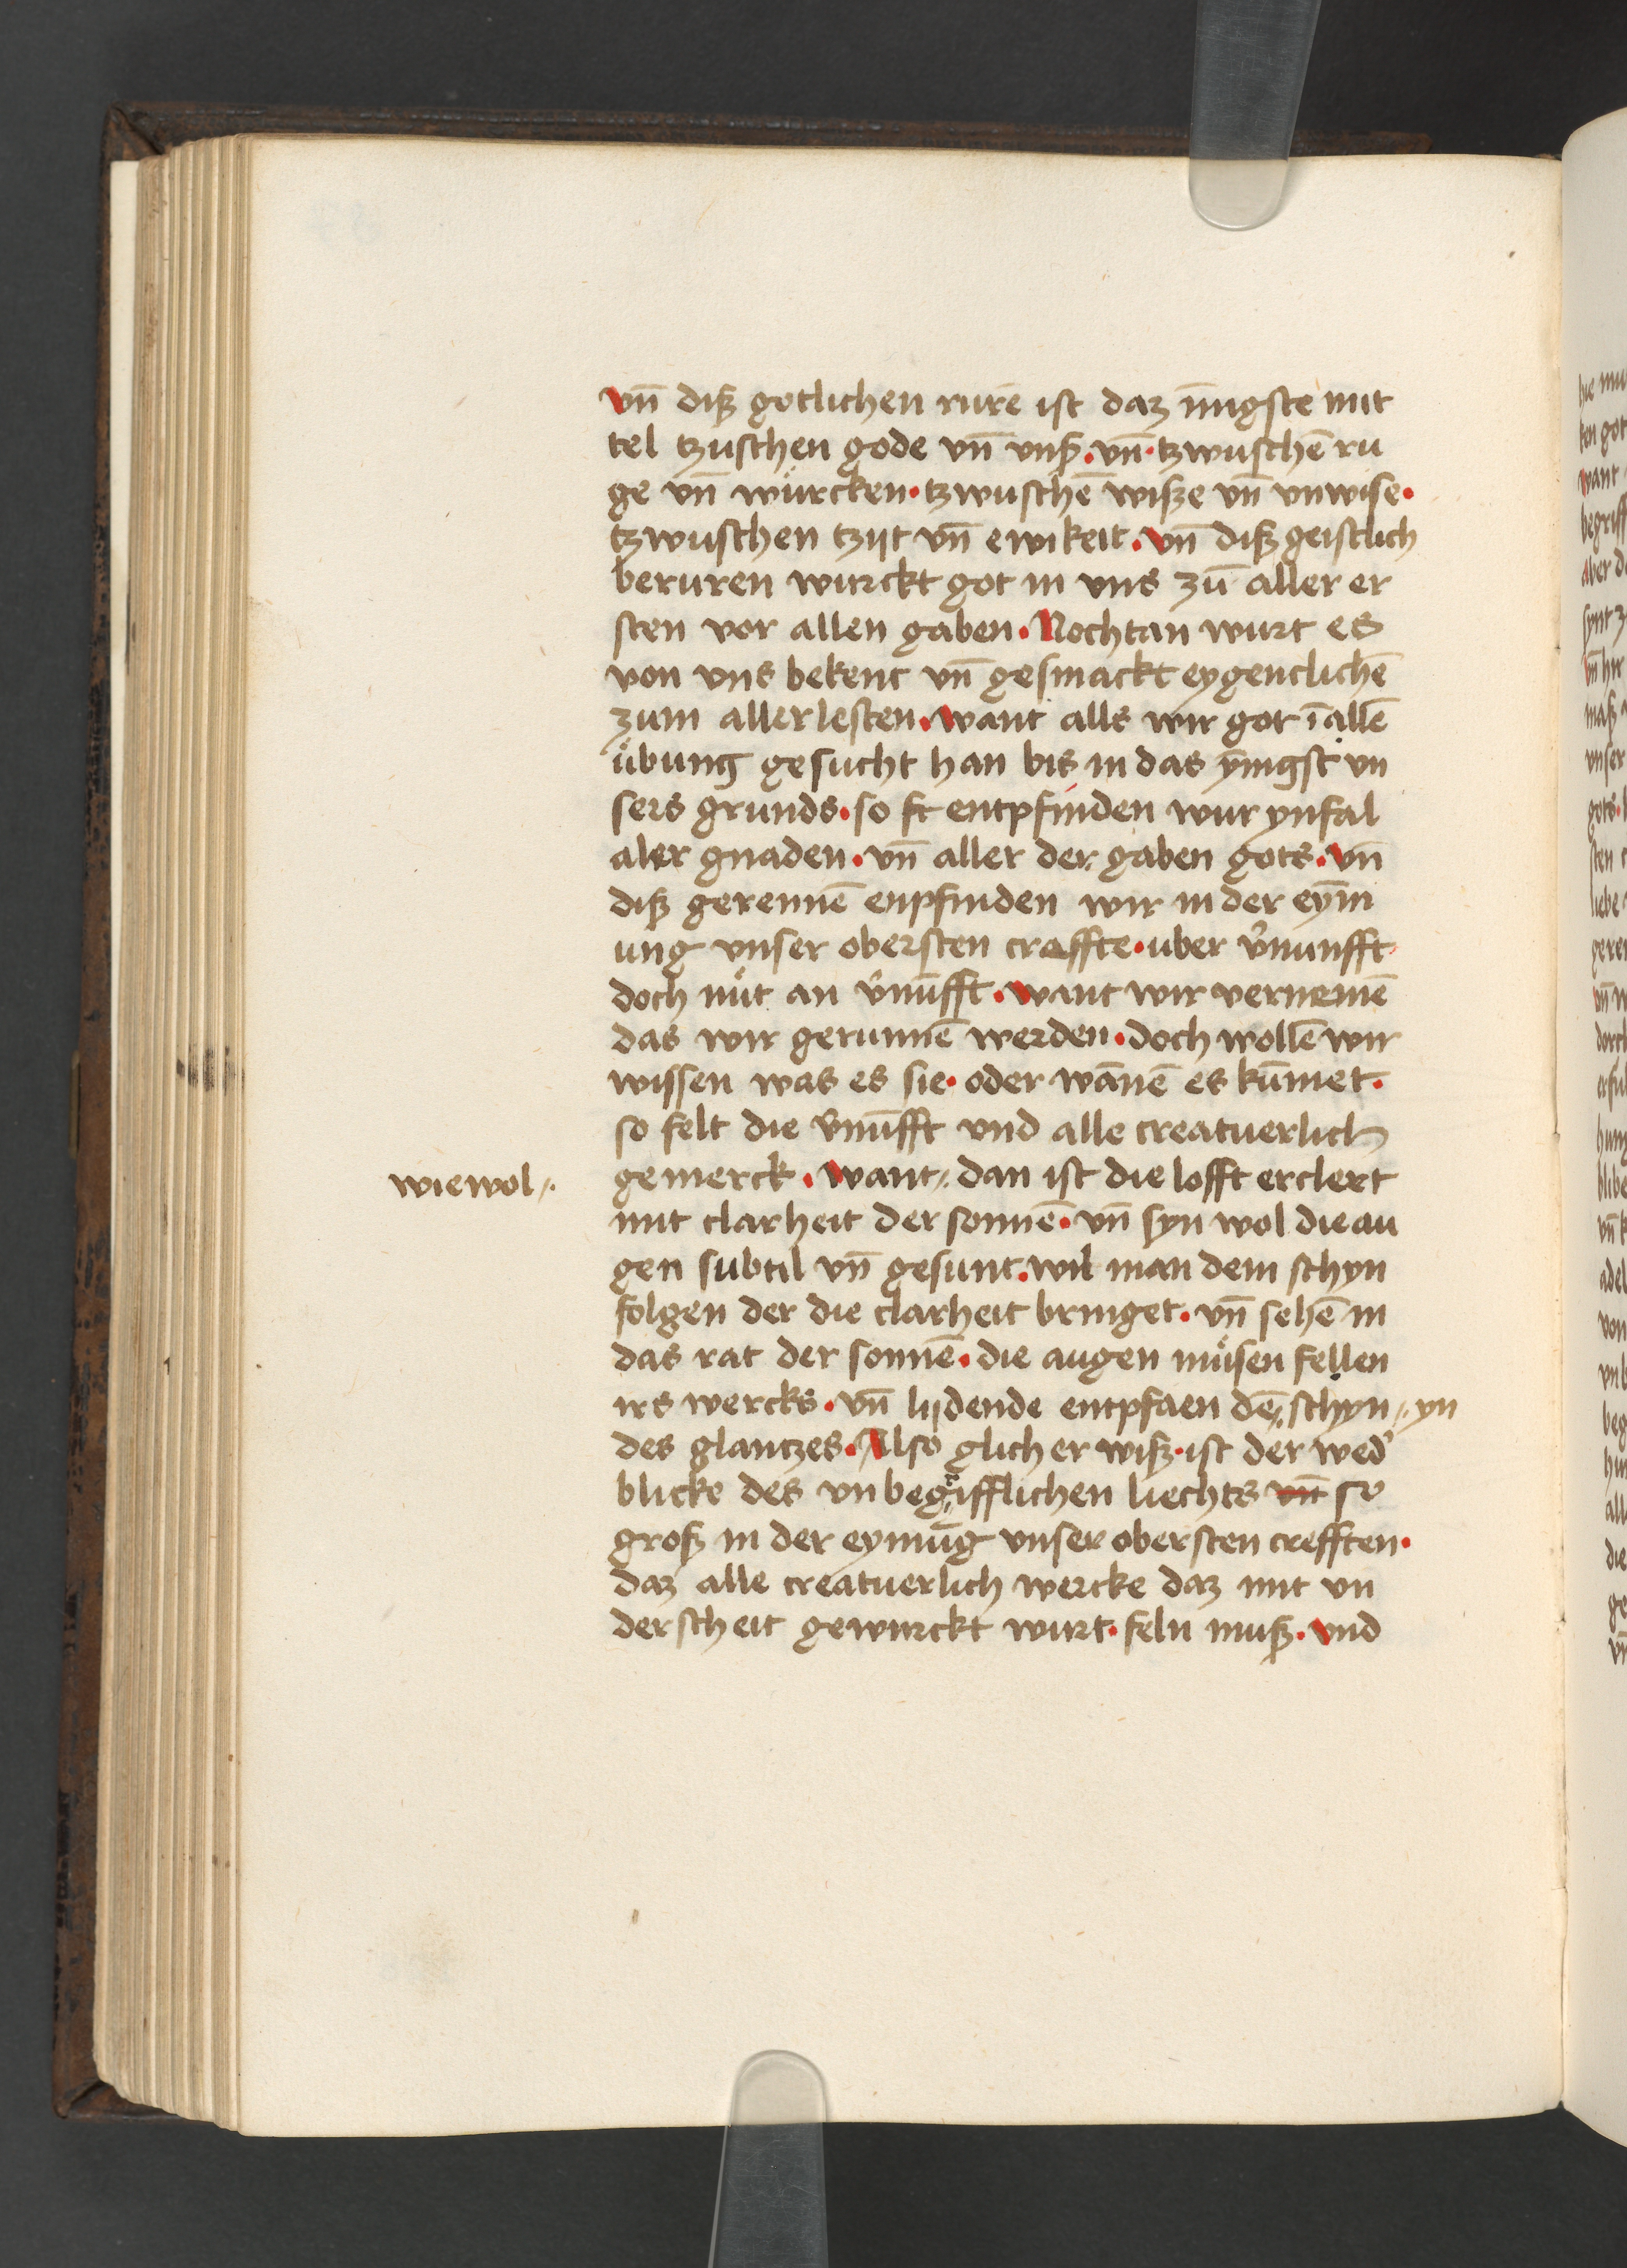 vn̄ diß gotlichen rurē ist daz īnigste mit
tel tzuschen gode vn̄ vnß. vn̄· tzwuschē ru
ge vn̄ würcken· tzwuschē wiße vn̄ vnwise·
tzwuschen tzijt vn̄ ewikeit. vn̄ diß geistlich
beruren wurckt got in vns zū aller er
sten vor allen gaben· Nochtan wurt es
von vns bekent vn̄ gesmackt eygentlichē
zum aller lesten. want alls wir got ī allē
übung gesucht han bis in das ȳnigst vn
sers grunds· so st entpfinden wur ynfal
aler gnaden· vn̄ aller der gaben gots. vn̄
diß gerennē enpfinden wir in der eȳni
ung vnser obersten craffte· uber v̉nunfft·
doch nüt an v̉nūfft. want wir vernemē
das wir gerunnē werden· doch wollē wir
wissen was es sie· oder wānē es kūmet·
so felt die v̉nūfft vnd alle creatuerlich
wiewol〃.
gemerck. want〃. dan ist die lofft erclert
mit clarheit der sonnē· vn̄ syn wol die au
gen subtil vn̄ gesunt. wil man dem schyn
folgen der die clarheit bringet· vn̄ sehē in
das rat der sonnē· die augen müsen fellen
irs wercks· vn̄ lijdende entpfaen dē〃 schyn〃. yn
des glantzes. Also glicher wiß· ist der wed̉
blicke des vnbegrifflichen liechts vn̄ so
groß in der eynnūg vnser obersten crefften·
daz alle creatuerlich wercke daz mit vn
derscheit gewurckt wurt· feln muß· vnd